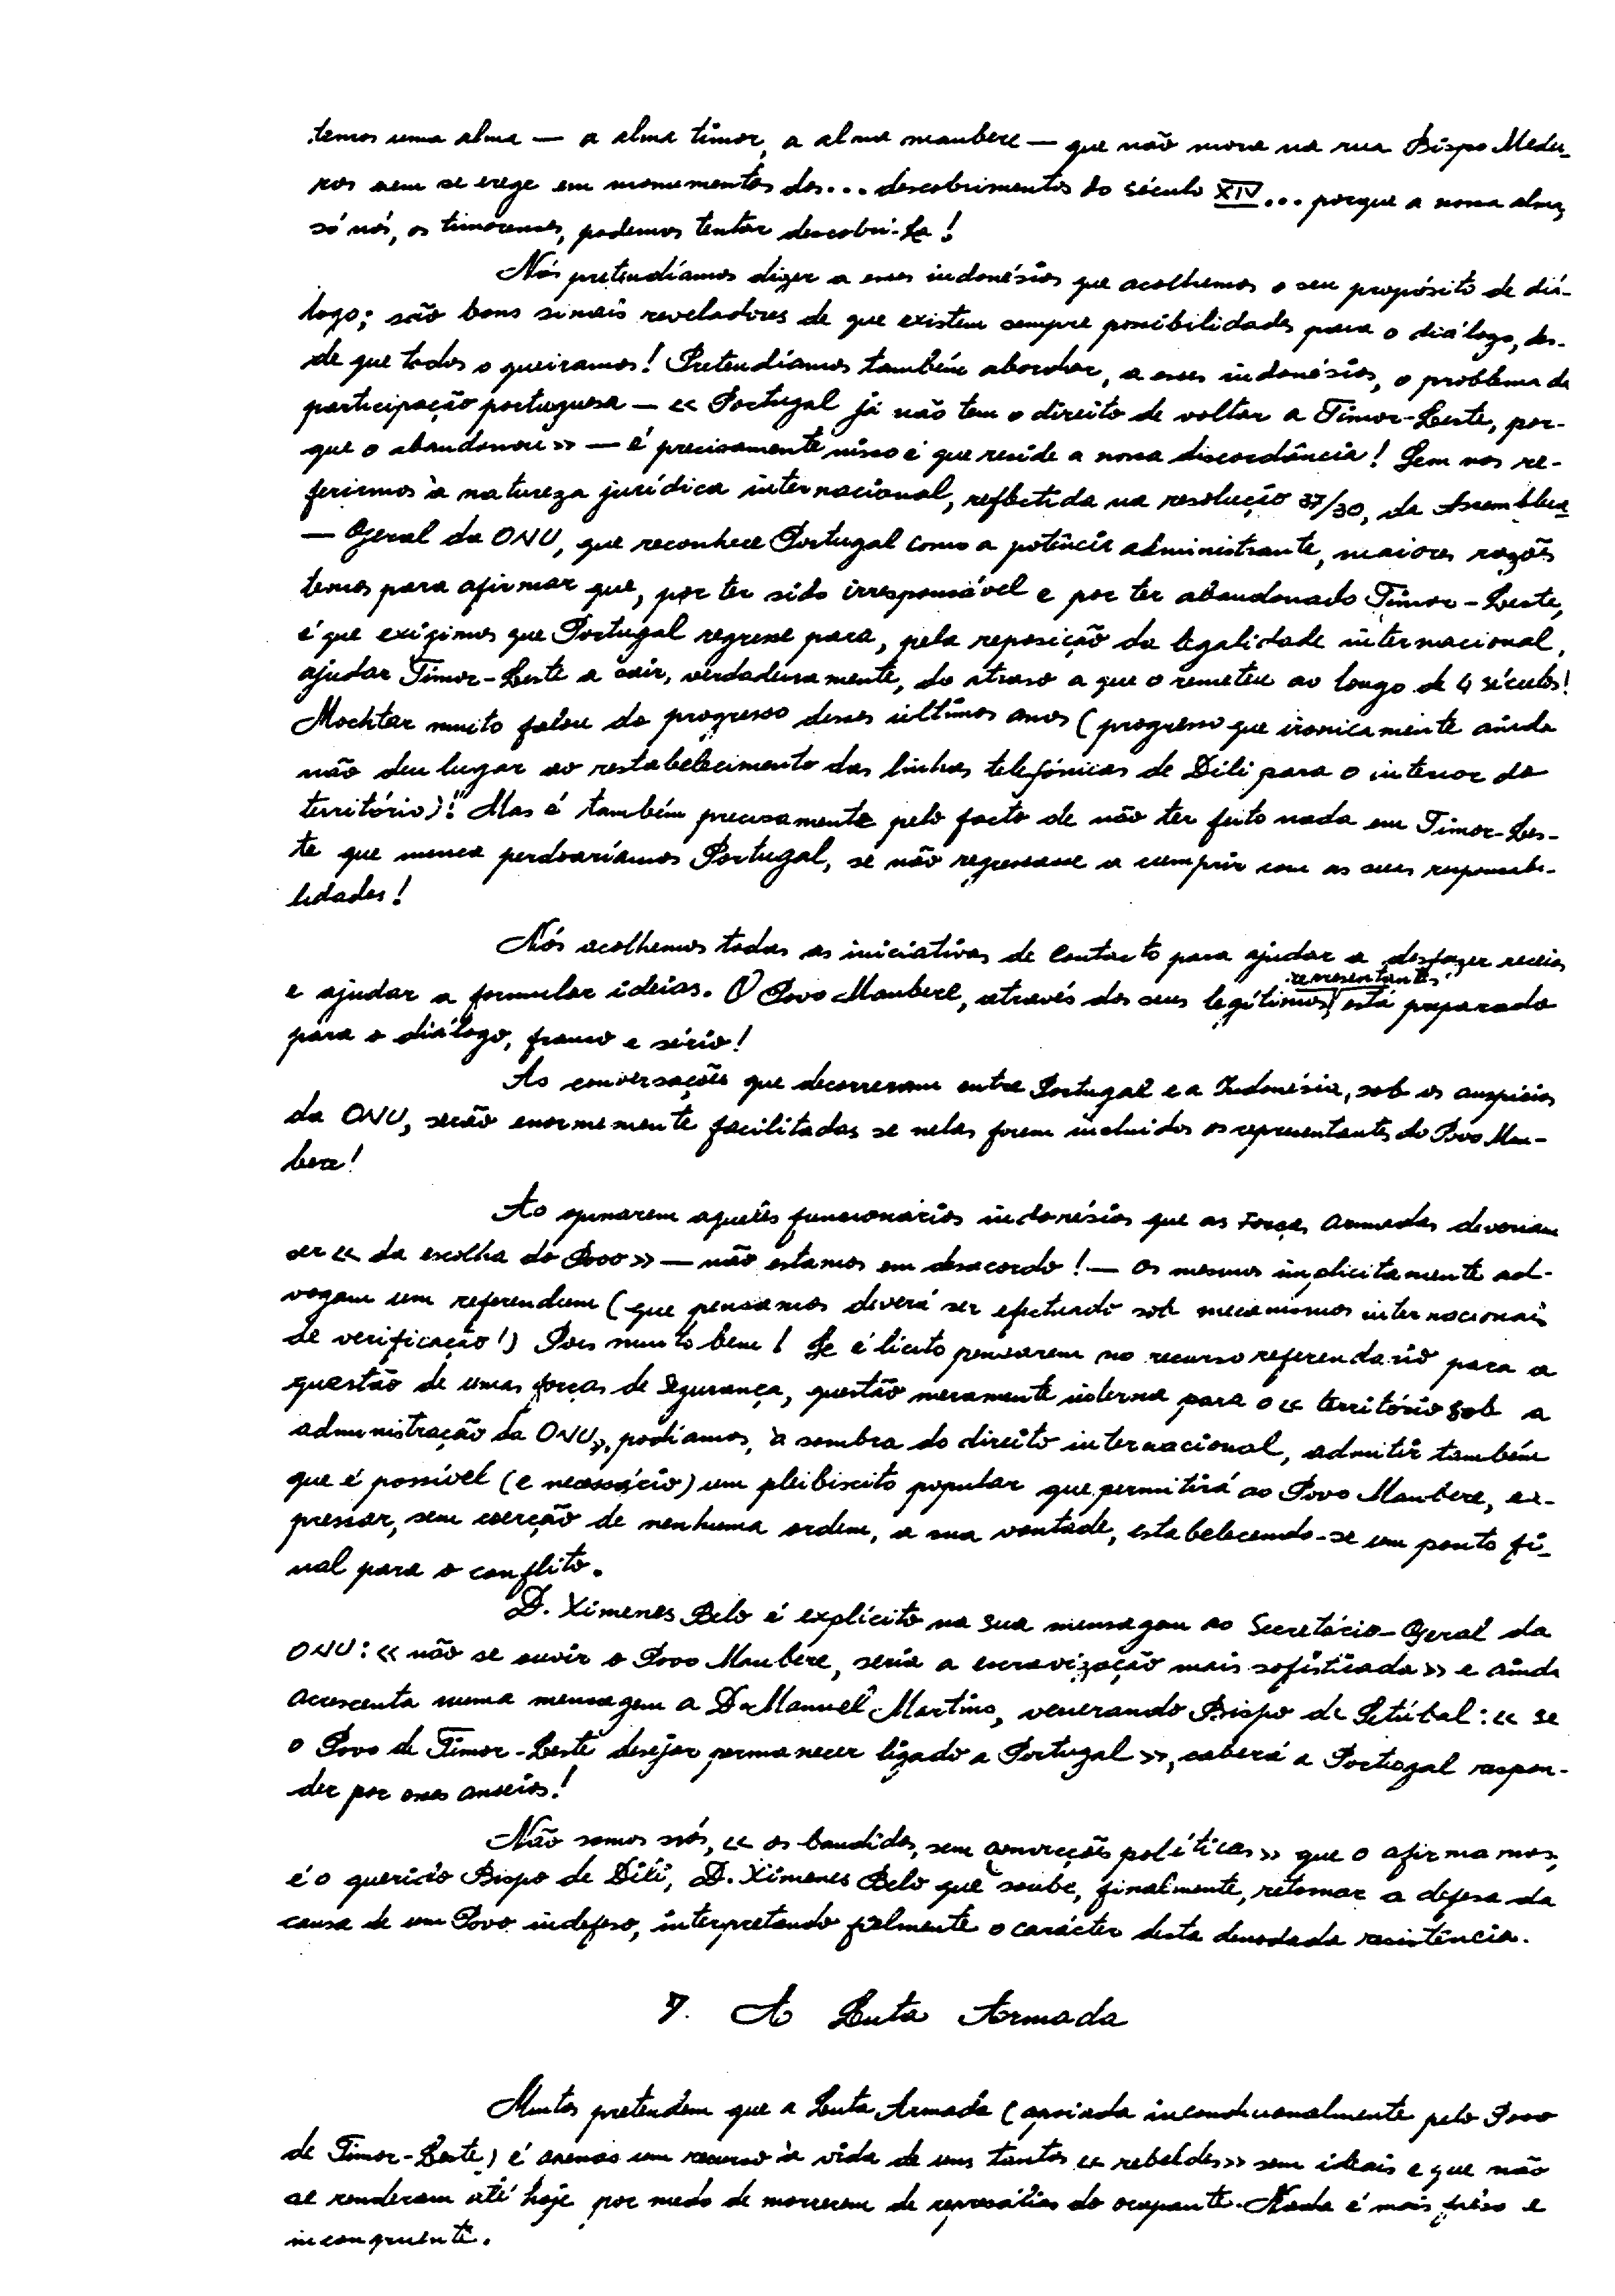 temos uma alma — a alma timor, a alma maubere — que não mora na rua Bispo Medei-
ros nem se erege em monumentos dos... descobrimentos do século XIV... porque a nossa alma,
só nós, os timorenses, podemos tentar descobri-la!
Nós pretendíamos dizer a esses indonésios que acolhemos o seu propósito de diá-
logo; são bons sinais reveladores de que existem sempre possibilidades para o diálogo, des-
de que todos o queiramos! Pretendíamos também abordar, a esses indonésios, o problema da
participação portuguesa — « Portugal já não tem o direito de voltar a Timor-Leste, por-
que o abandonou » — é precisamente nisso é que reside a nossa discordância! Sem nos re-
ferirmos à natureza jurídica internacional, reflectida na resolução 37/30, da Assembleia
— Geral da ONU, que reconhece Portugal como a potência administrante, maiores razões
temos para afirmar que, por ter sido irresponsável e por ter abandonado Timor-Leste,
é que exigimos que Portugal regresse para, pela reposição da legalidade internacional,
ajudar Timor-Leste a sair, verdadeiramente, do atraso a que o remeteu ao longo de 4 séculos!
Mochtar muito falou do progresso desses últimos anos ( progresso que ironicamente ainda
não deu lugar ao restabelecimento das linhas telefónicas de Dili para o interior do
território)! Mas é também precisamente pelo facto de não ter feito nada em Timor-Les-
te que nunca perdoaríamos Portugal, se não regressasse a cumprir com as suas responsabi-
lidades!
Nós acolhemos todas as iniciativas de contacto para ajudar a desfazer receios
e ajudar a formular ideias. O Povo Maubere, através dos seus legítimos representantes, está preparado
para o diálogo, franco e sério!
As conversações que decorreram entre Portugal e a Indonésia, sob os auspícios
da ONU, serão enormemente facilitadas se nelas forem incluídos os representantes do Povo Mau-
bere!
Ao opinarem aqueles funcionários indonésios que as Forças Armadas deveriam
ser « da escolha do Povo » — não estamos em desacordo! — os mesmos implicitamente ad-
vogam um referendum ( que pensamos deverá ser efectuado sob mecanismos internacionais
de verificação!) Pois muito bem! Se é lícito pensarem no recurso referendário para a
questão de umas forças de segurança, questão meramente interna para o « território sob a
administração da ONU», podíamos, à sombra do direito internacional, admitir também
que é possível (e necessário) um pleibiscito popular que permitirá ao Povo Maubere, ex-
pressar, sem coerção de nenhuma ordem, a sua vontade, estabelecendo-se um ponto fi-
nal para o conflito.
D. Ximenes Belo é explícito na sua mensagem ao Secretário-Geral da
ONU: « não se ouvir o Povo Maubere, seria a escravização mais sofisticada » e ainda
acrescenta numa mensagem a D. Manuel Martins, venerando Bispo de Setúbal: « se
o Povo de Timor-Leste desejar permanecer ligado a Portugal », caberá a Portugal respon-
der por esses anseios!
Não somos nós, « os bandidos, sem convicções políticas » que o afirmamos,
é o querido Bispo de Dili, D. Ximenes Belo que soube, finalmente, retomar a defesa da
causa de um Povo indefeso, interpretando fielmente o carácter desta denodada resistência.
7. A Luta Armada
Muitos pretendem que a Luta Armada (apoiada incondicionalmente pelo Povo
de Timor-Leste) é apenas um recurso à vida de uns tantos « rebeldes » sem ideais e que não
se renderam até hoje por medo de morrerem de represálias do ocupante. Nada é mais falso e
incongruente.